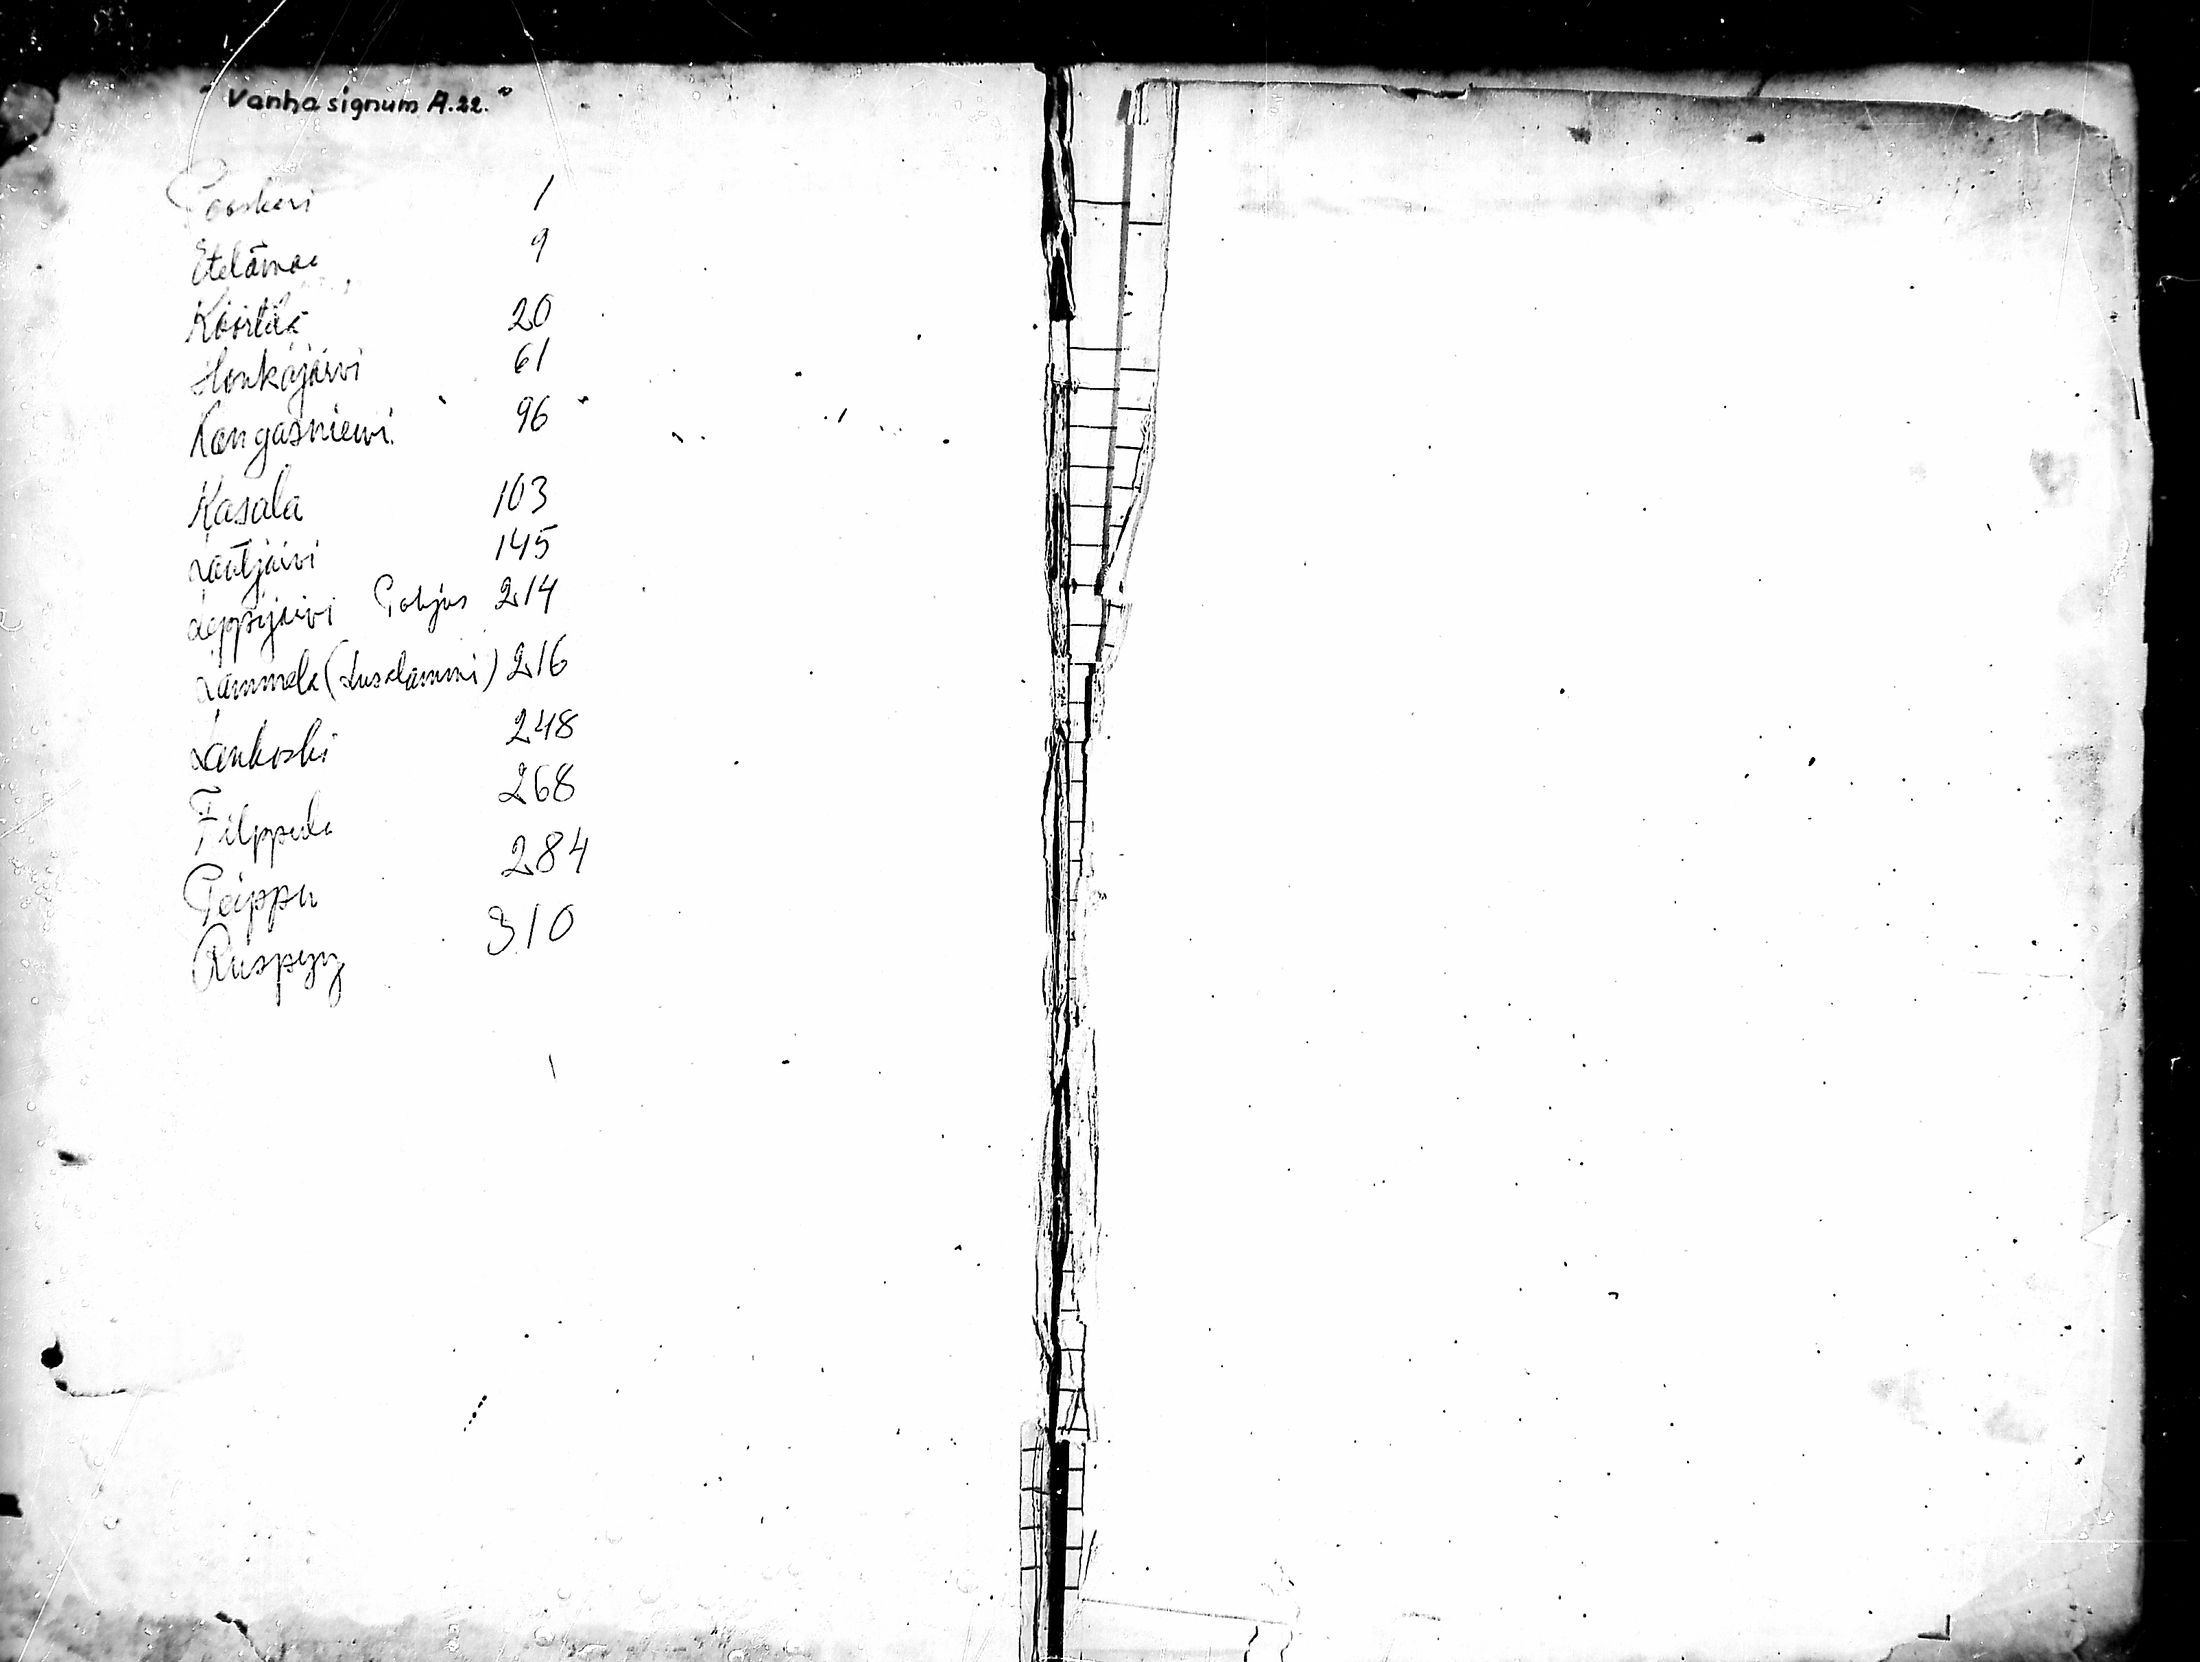 "Vanha signum A.22."
Pooskeri 1
Etelämaa 9
Köörtilä 20
Honkajärvi 61
Kangasniemi 96
Kasala 103
Lautjärvi 145
Leppijärvi Pohjus 214
Lammela (Lusalammi) 216
Lankoski 248
Filppula 268
Peippu 284
Riispyy 310